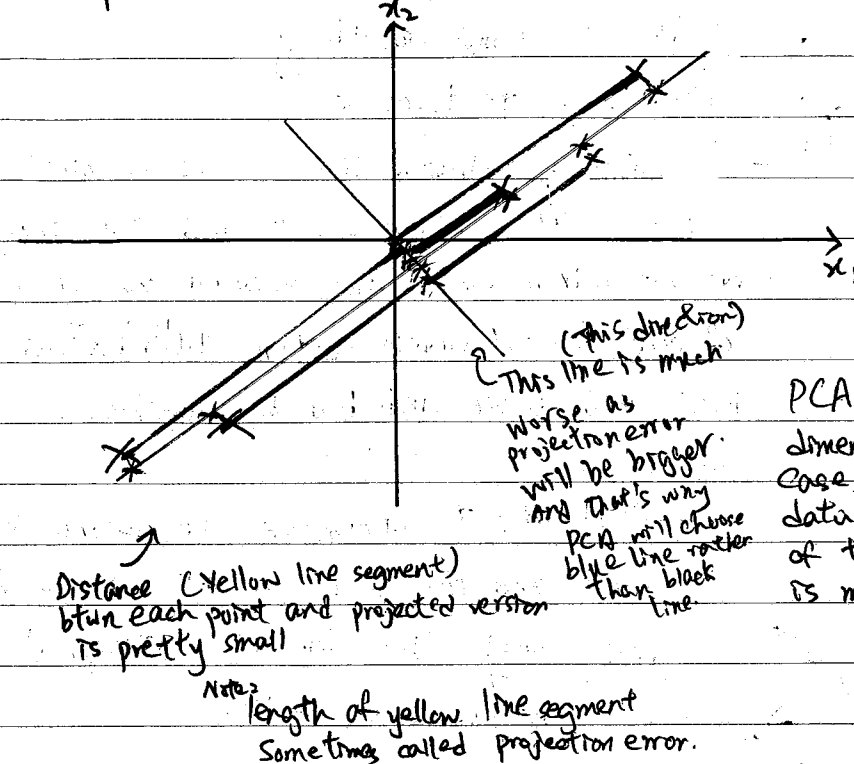 x2
x
(This direction)
This line is much
worse as
projection error
will be bigger.
And that's why
PCA will choose
blue line rather
than black
line.
PCA
dimen
case
data
of t
is m
Distance (Yellow line segment)
btwn each point and projected version
is pretty small
Note:
length of yellow line segment
Sometimes called projection error.